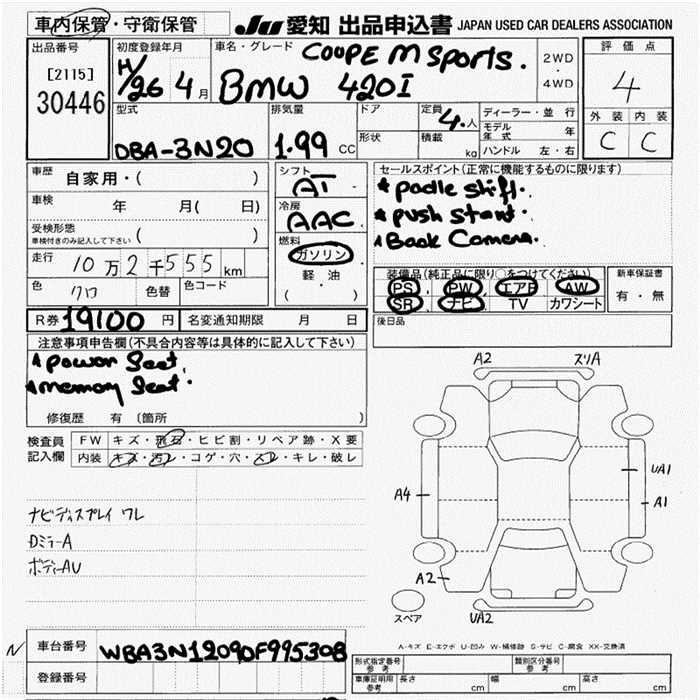 車内保管・守衛保管
JU 愛知 出品申込書 JAPAN USED CAR DEALERS ASSOCIATION
出品番号
[2115]
30446
初度登録年月
H/26 4月
車名・グレード
COUPE M Sports.
BMW 420I
2WD
・
4WD
評価点
4
外装 内装
C C
型式
DBA-3N20
排気量
1.99 CC
ドア
形状
定員 4.人
積載 kg
ディーラー・並行
モデル年式 年
ハンドル 左・右
車歴
自家用・( )
車検 年 月( 日)
受検形態
車検付きのみ記入して下さい ( )
走行 10万2千555km
色 クロ 色替 色コード
シフト
AT
冷房
AAC
燃料
ガソリン
軽・油
( )
セールスポイント(正常に機能するものに限ります)
★ padle shift.
★ push start.
★ Back Camera.
装備品(純正品に限り○をつけてください)
PS PW エアB AW
SR ナビ TV カワシート
新車保証書
有・無
R券 19100円 名変通知期限 月 日
後日品
注意事項申告欄(不具合内容等は具体的に記入して下さい)
★ power Seat.
★ memory Seat.
修復歴 有 〔箇所 〕
検査員記入欄
FW キズ・飛石・ヒビ割・リペア跡・X要
内装 キズ・汚レ・コゲ・穴・スレ・キレ・破レ
ナビディスプレイ ワレ
DミラーA
ボディーAU
A2 スリA
UA1
A4 A1
A2
UA2
スペア
A-キズ E-エクボ U-凹み W-補修跡 S-サビ C-腐食 XX-交換済
N
車台番号 WBA3N12090F995308
登録番号
形式指定番号 参考
類別区分番号 参考
車庫証明用 参考 長さ cm 幅 cm 高さ cm